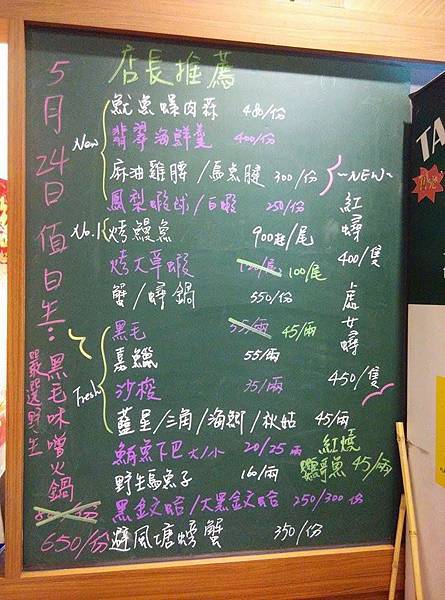 店長推薦
5月24日 值日生:黑毛味噌火鍋
嚴選野生
650/份
New
魷魚螺肉蒜 480/份
翡翠海鮮羹 400/份
麻油雞腰/馬魚腱 300/份
~NEW~
鳳梨蝦球/白蝦 250/份
No.1 烤鰻魚 900起/尾
烤大草蝦 120/尾 100/尾
蟹/蟳鍋 550/份
紅蟳 400/隻
處女蟳 450/隻
Fresh
黑毛 55/兩 45/兩
嘉鱲 55/兩
沙梭 35/兩
藍星/三角/海鯽/秋姑 45/兩
鮪魚下巴大/小 20/25兩
野生馬魚子 160/兩
紅燒
鸚哥魚 45/兩
黑金文哈/大黑金文哈 250/300份
避風塘螃蟹 350/份
TA